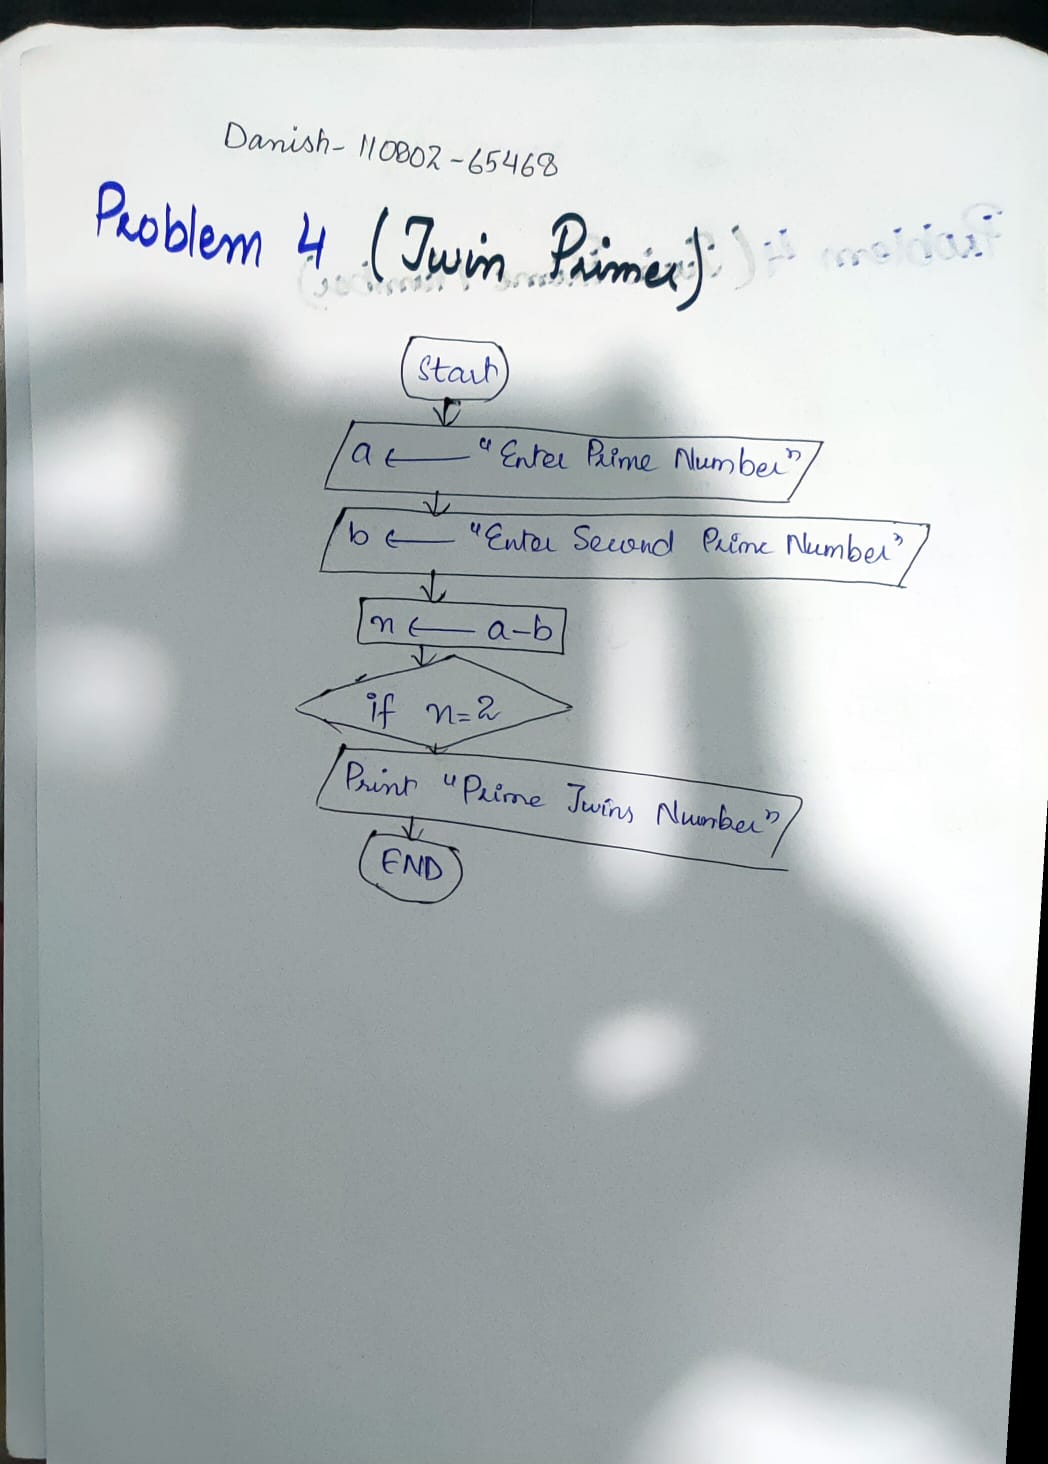 Danish- 110802-65468
Problem 4 (Twin Primes)
Start
a ← "Enter Prime Number"
b ← "Enter Second Prime Number"
n ← a-b
if n=2
Print "Prime Twins Number"
END